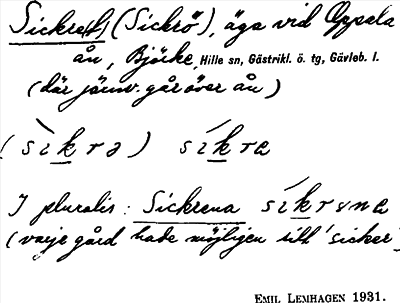 Sickre(t) (Sickrö), äga vid Oppala
ån, Björke, Hille sn, Gästrikl. ö. tg, Gävleb. l.
(där järnv. går över ån)
(sìkrə) síkrɐ
I pluralis: Sickrena síkrɐna
(varje gård hade möjligen sitt "sicker")
EMIL LEMHAGEN 1931.